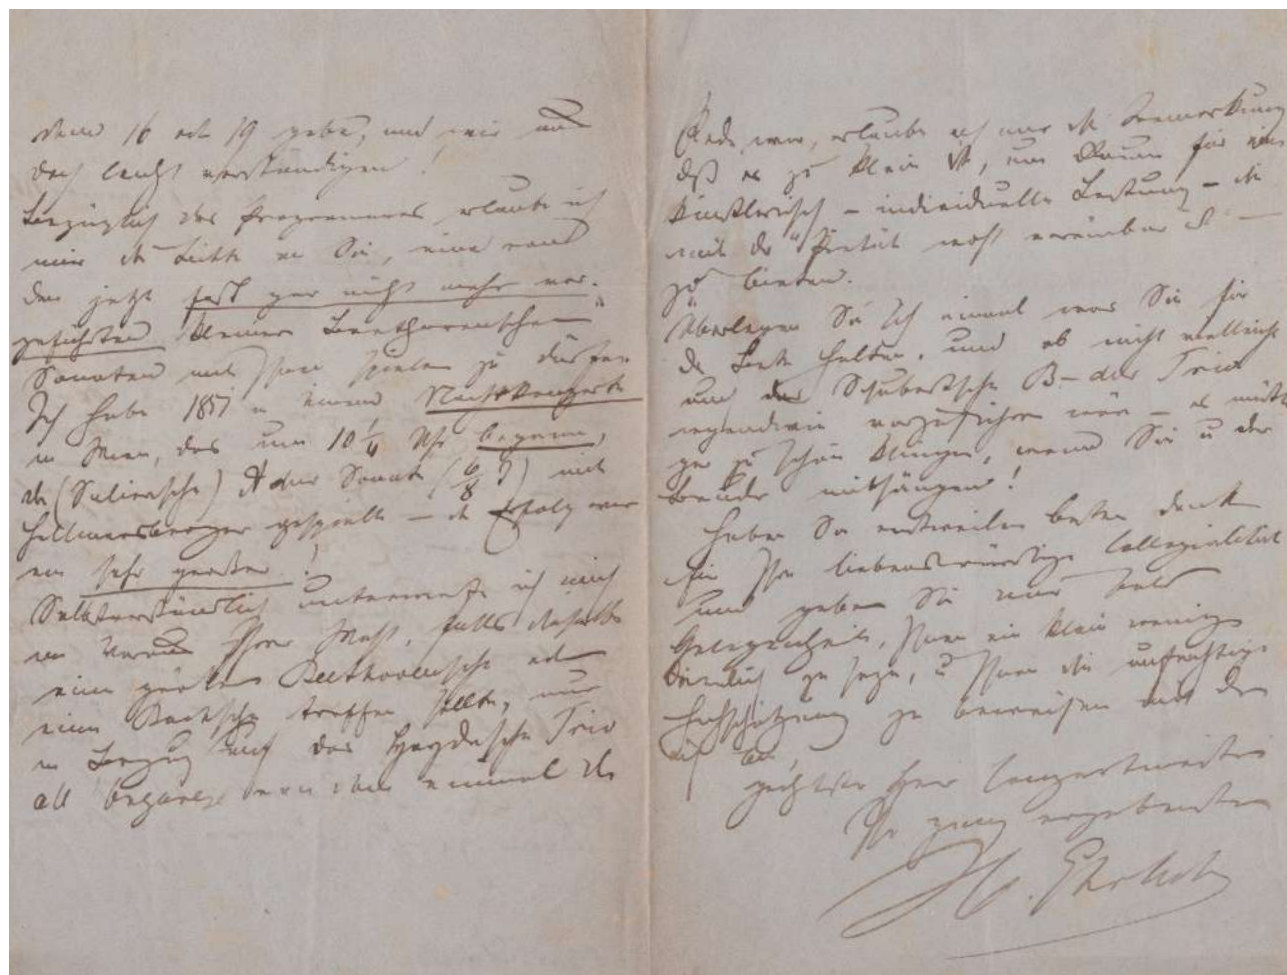 dem 16 od 19 gebe, und wir uns
doch leicht verständigen!
Bezüglich des Programmes erlaube ich
mir die Bitte an Sie, eine von
den jetzt fast gar nicht mehr vor-
geführten kleinen Beethovenschen
Sonaten mit Ihnen spielen zu dürfen
Ich habe 1857 in einem Nachtkonzerte
in Wien, das um 10 1/4 Uhr begann,
die (Salierische) A dur Sonate (6/8) mit
Hellmesberger gespielt – der Erfolg war
ein sehr großer!
Selbstverständlich unterwerfe ich mich
Ihrer Wahl, falls dieselbe
eine größere Beethovensche od
eine Bachsche treffen sollte, nur
in Bezug auf das Haydnsche Trio
einmal die
Rede war, erlaube ich mir die Bemerkung
daß es zu klein ist, um Raum für eine
künstlerisch – individuelle Leistung – die
mit der Pietät wohl vereinbar ist –
zu bieten.
Überlegen Sie sich einmal was Sie für
das Beste halten, und ob nicht vielleicht
das Schubertsche B-dur Trio
irgendwie vorzuführen wäre – es müßte
gar zu schön klingen, wenn Sie u der
Bruder mitsängen!
Haben Sie einstweilen besten Dank
für Ihre liebenswürdige Collegialität
und geben Sie mir bald
Gelegenheit, Ihnen ein klein wenig
dienlich zu sein, u Ihnen die aufrichtige
Hochschätzung zu beweisen mit der
ich bin,
geehrter Herr Conzertmeister
Ihr ganz ergebenster
H. Ehrlich